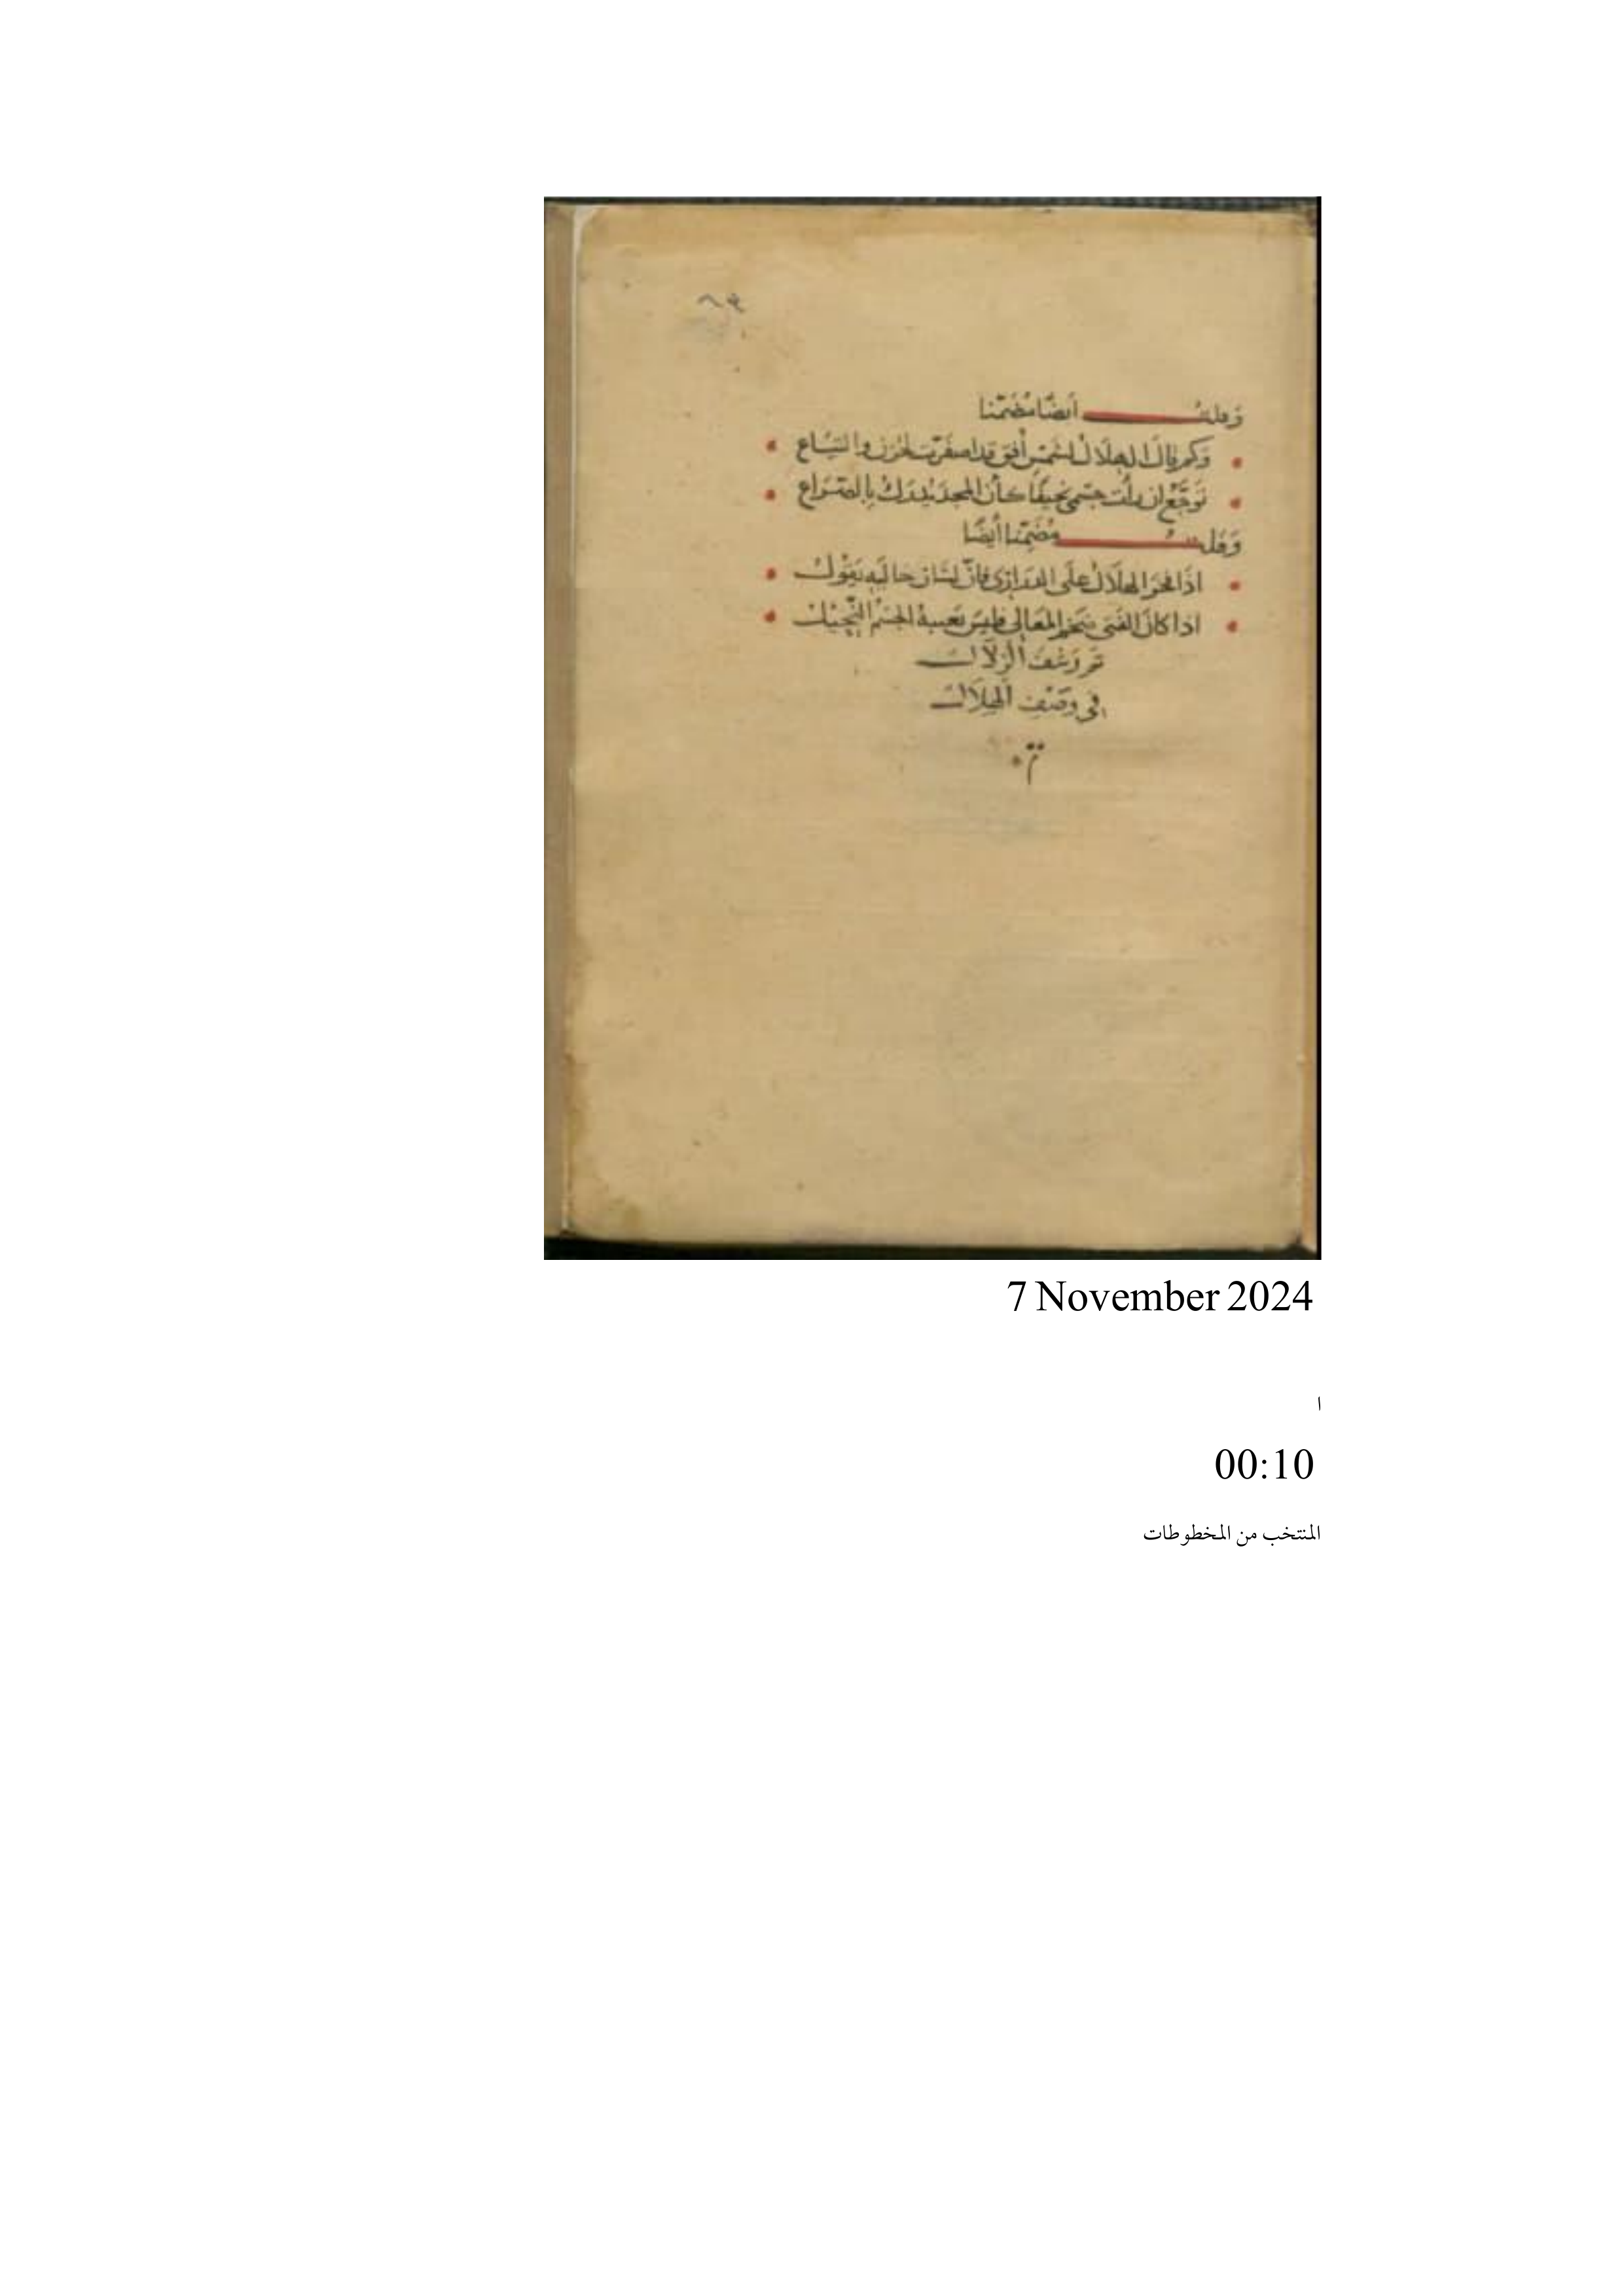 وَقلتُ أيضًا مُضَمّنا
وَكم قالَ الهلَالُ لشمسِ أفق قد اصفرّت لحزن والتياع
تَوَجَّعُ ان رأت جسمي نحيفًا كأن المجدَ يُدرَكُ بالصّراع
وَقلتُ مُضَمِّنا أيضًا
اذَا فخرَ الهلَالُ علَى الدرَارِي فانّ لسَان حاليهِ يَقولُ
اذا كانَ الفتى ضخم المعَالي فليسَ يَعيبهُ الجسْمُ النّحِيْلُ
تم رَشفُ الزلال
في وصْفِ الهِلال
تم
7 November 2024
ا
00:10
المنتخب من المخطوطات